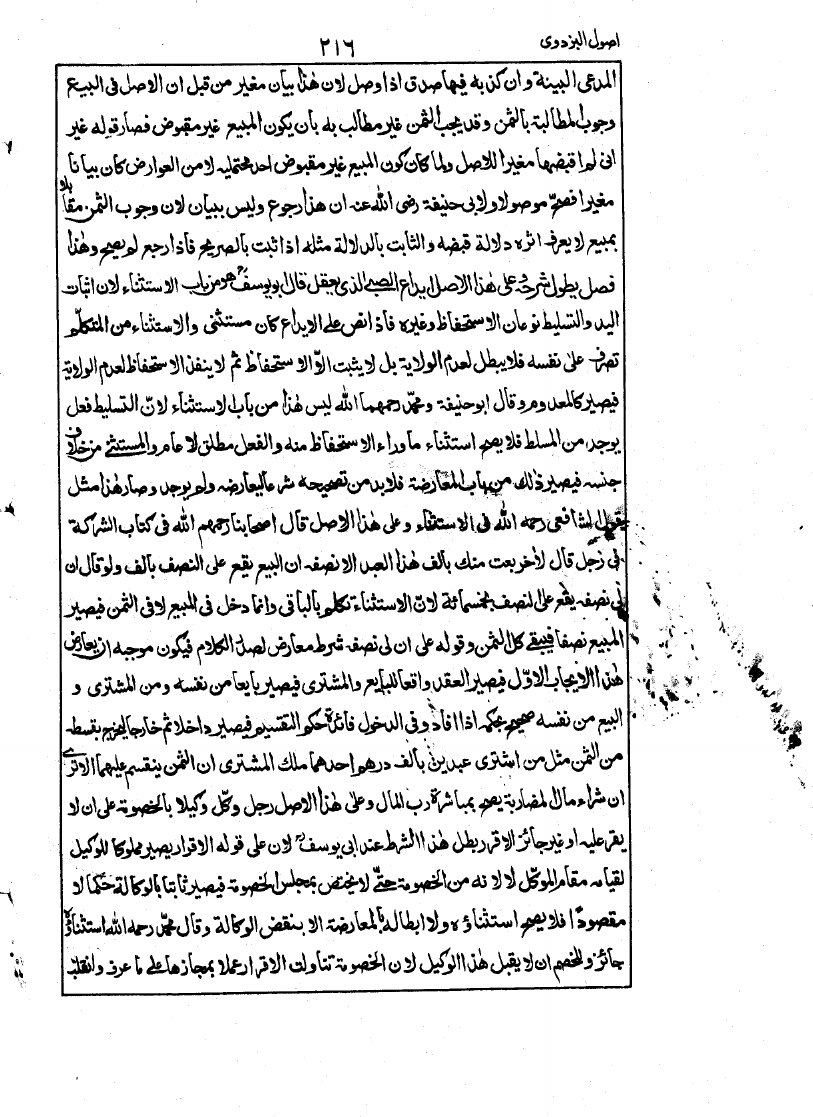 اصول البزدوى
٢١٦
المدعى البينة وان كذبه فيها صدق اذا وصل لان هذا بيان مغير من قبل ان الاصل فى البيع
وجوب المطالبة بالثمن وقد يجب الثمن غير مطالب به بأن يكون المبيع غير مقبوض فصار قوله غير
انى لم اقبضها مغيرا للاصل ولما كان كون المبيع غير مقبوض احد محتمليه لا من العوارض كان بيانا
مغيرا فصح موصولا ولابى حنيفة رضى الله عنه ان هذا رجوع وليس ببيان لان وجوب الثمن مقابلا
بمبيع لا يعرف اثره دلالة قبضه والثابت بالدلالة مثله اذا ثبت بالصريح فاذا رجع لم يصح وهذا
فصل يطول شرحه وعلى هذا الاصل ايداع الصبى الذى يعقل قال ابو يوسف هو من باب الاستثناء لان اثبات
اليد والتسليط نوعان الاستحفاظ وغيره فاذا نص على الايداع كان مستثنى والاستثناء من المتكلم
تصرف على نفسه فلا يبطل لعدم الولاية بل لا يثبت الا الاستحفاظ ثم لا ينفذ الاستحفاظ لعدم الولاية
فيصير كالمعدوم وقال ابو حنيفة ومحمد رحمهما الله ليس هذا من باب الاستثناء لان التسليط فعل
يوجد من المسلط فلا يصح استثناء ما وراء الاستحفاظ منه والفعل مطلق لا عام والمستثنى من خلاف
جنسه فيصير ذلك من باب المعارضة فلا بد من تصحيحه شرعا ليعارضه ولم يوجد وصار هذا مثل
قول الشافعى رحمه الله فى الاستثناء وعلى هذا الاصل قال اصحابنا رحمهم الله فى كتاب الشراكة
فى رجل قال لآخر بعت منك بألف هذا العبد الا نصفه ان البيع يقع على النصف بألف ولو قال ان
لى نصفه يقع على النصف بخمسمائة لان الاستثناء تكلم بالباقى وانما دخل فى المبيع لا فى الثمن فيصير
المبيع نصفا فيبقى كل الثمن وقوله على ان لى نصفه شرط معارض لصدر الكلام فيكون موجبه ان يعارض
هذا الايجاب الاول فيصير العقد واقعا للبايع والمشترى فيصير بايعا من نفسه ومن المشترى و
البيع من نفسه صحيح بحكمه اذا افاد وفى الدخول فائدة حكم التقسيم فيصير داخلا ثم خارجا ليخرج بقسطه
من الثمن مثل من اشترى عبدين بألف درهم واحدهما ملك المشترى ان الثمن ينقسم عليهما الا ترى
ان شراء مال المضاربة يصح بمباشرة رب المال وعلى هذا الاصل رجل وكل وكيلا بالخصومة على ان لا
يقر عليه او غير جائز الاقرار بطل هذا الشرط عند ابى يوسف لان على قوله الاقرار يصير مملوكا للوكيل
لقيامه مقام الموكل لا لانه من الخصومة حتى لا يختص بمجلس الخصومة فيصير ثابتا بالوكالة حكما لا
مقصودا فلا يصح استثناؤه ولا ابطاله بالمعارضة الا بنقض الوكالة وقال محمد رحمه الله استثناؤه
جائز وللخصم ان لا يقبل هذا الوكيل لان الخصومة تناولت الاقرار عملا بمجازها على ما عرف وانقلب